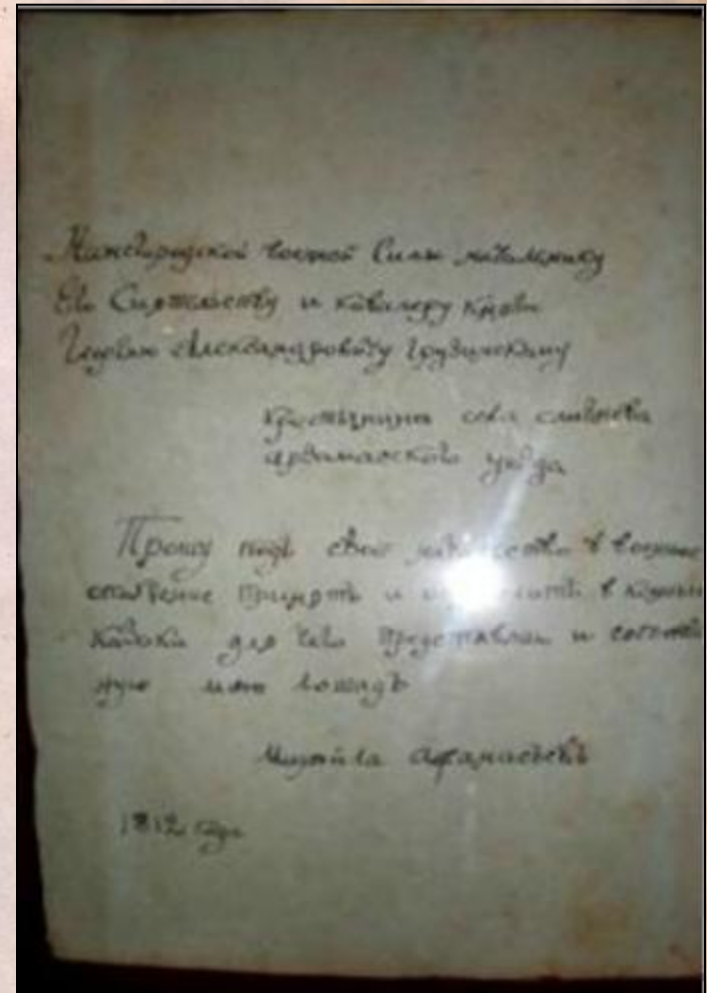 Нижегородской военной Силы начальнику
Его Сиятельству и кавалеру князю
Георгию Александровичу Грузинскому
крестьянина села
арзамаского уезда
Прошу подъ свое в военное
ополчение принять и в конныя
казаки для чего представляю и собствен
ную мою лошадь
Михайла Афанасьевъ
1812 года